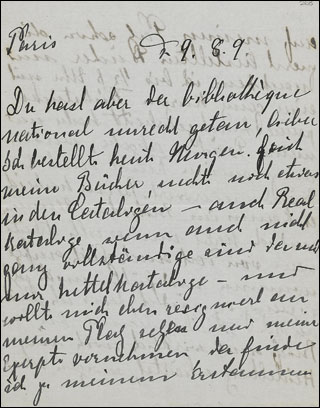 Paris d. 9. 8. 9.
Du hast aber der bibliothèque
national unrecht getan, lieber
Ich bestellte heute Morgen gleich
meine Bücher, suchte noch etwas
in den Catalogen – auch Real
Kataloge wenn auch nicht
ganz vollständige sind da und
nur Zettelkataloge – und
wollte mich eben resigniert an
meinen Platz setzen und meine
Exzerpte vornehmen da finde
ich zu meinem Erstaunen